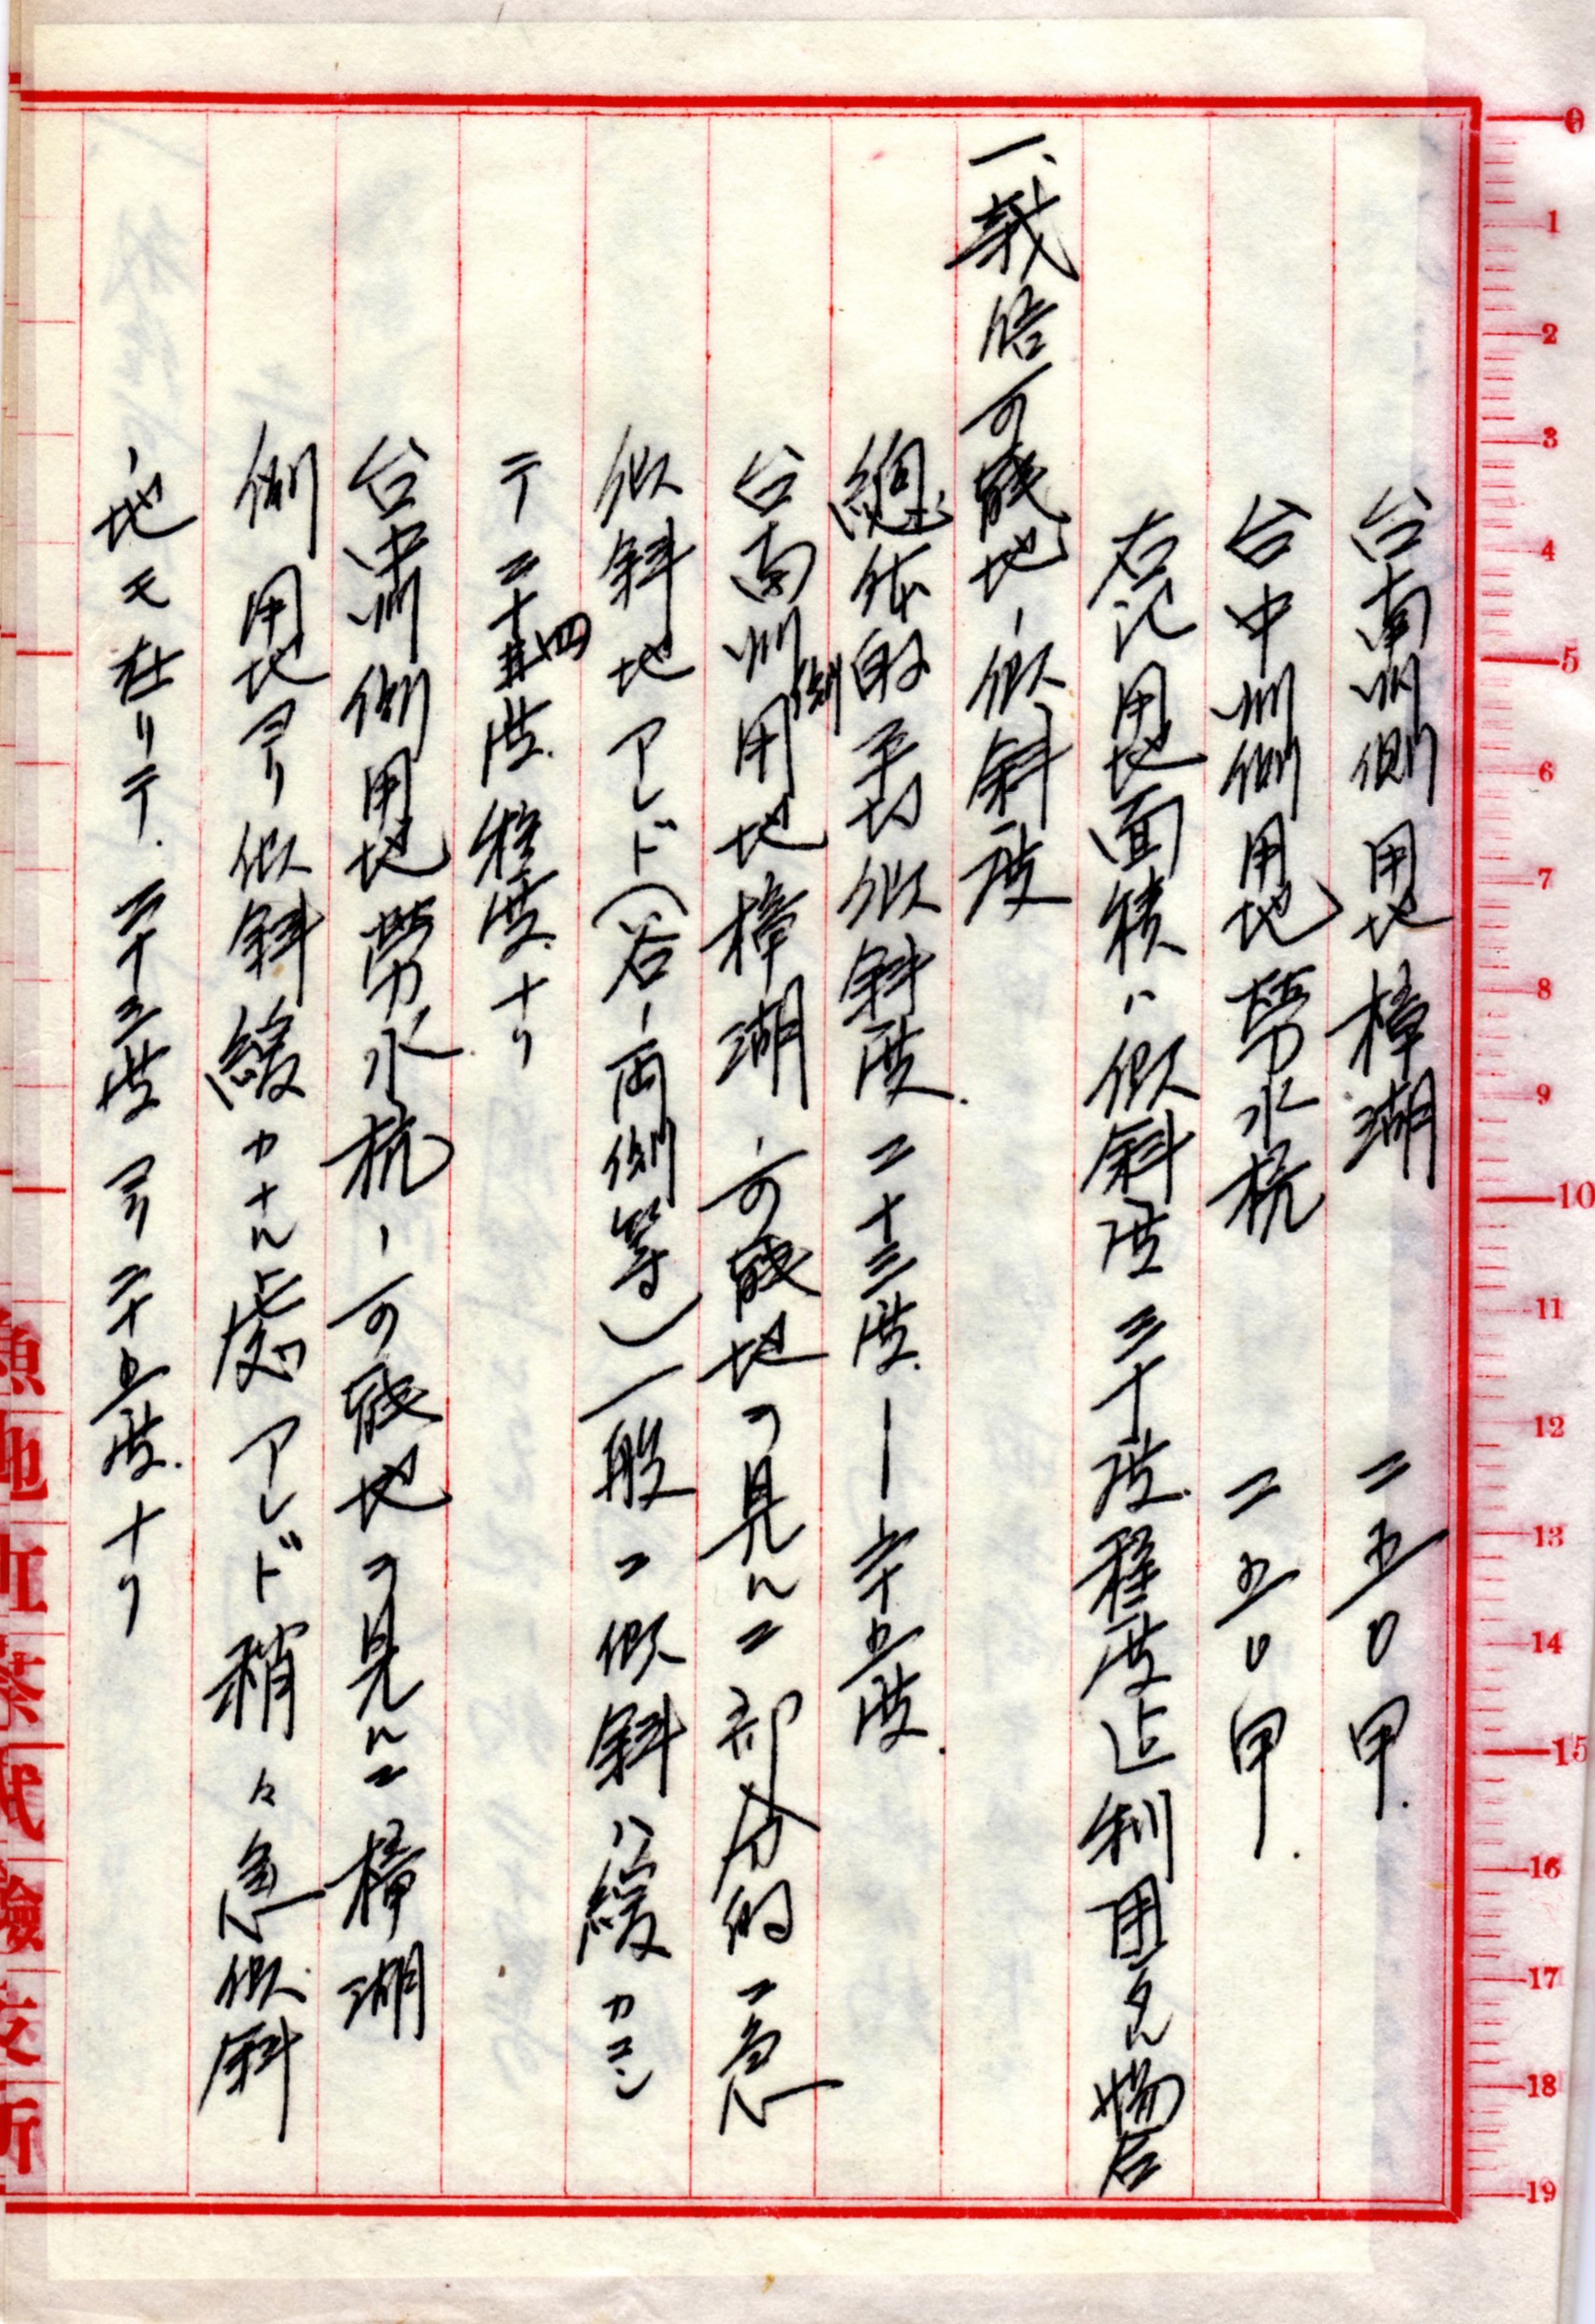 台南州側用地樟湖　二五〇甲.
台中州側用地勞水杭　二五〇甲.
右記用地面積ハ似斜度三十度程度迄利用シタル場合
一、栽倍可能地ノ似斜度
總体的平均似斜度.二十三度ー二十五度.
台南州側用地樟湖ノ可能地ヲ見ルニ部分的ニ急
似斜地アレド(谷ノ両側等)一般ニ似斜ハ緩カニシ
テ二十四度程度ナリ
台中州側用地勞水杭ノ可能地ヲ見ルニ樟湖
側用地ヨリ似斜緩カナル処アレド稍々急似斜
ノ地モ在リテ.二十三度ヨリ二十五度.ナリ
0
1
2
3
4
5
6
7
8
9
10
11
12
13
14
15
16
17
18
19